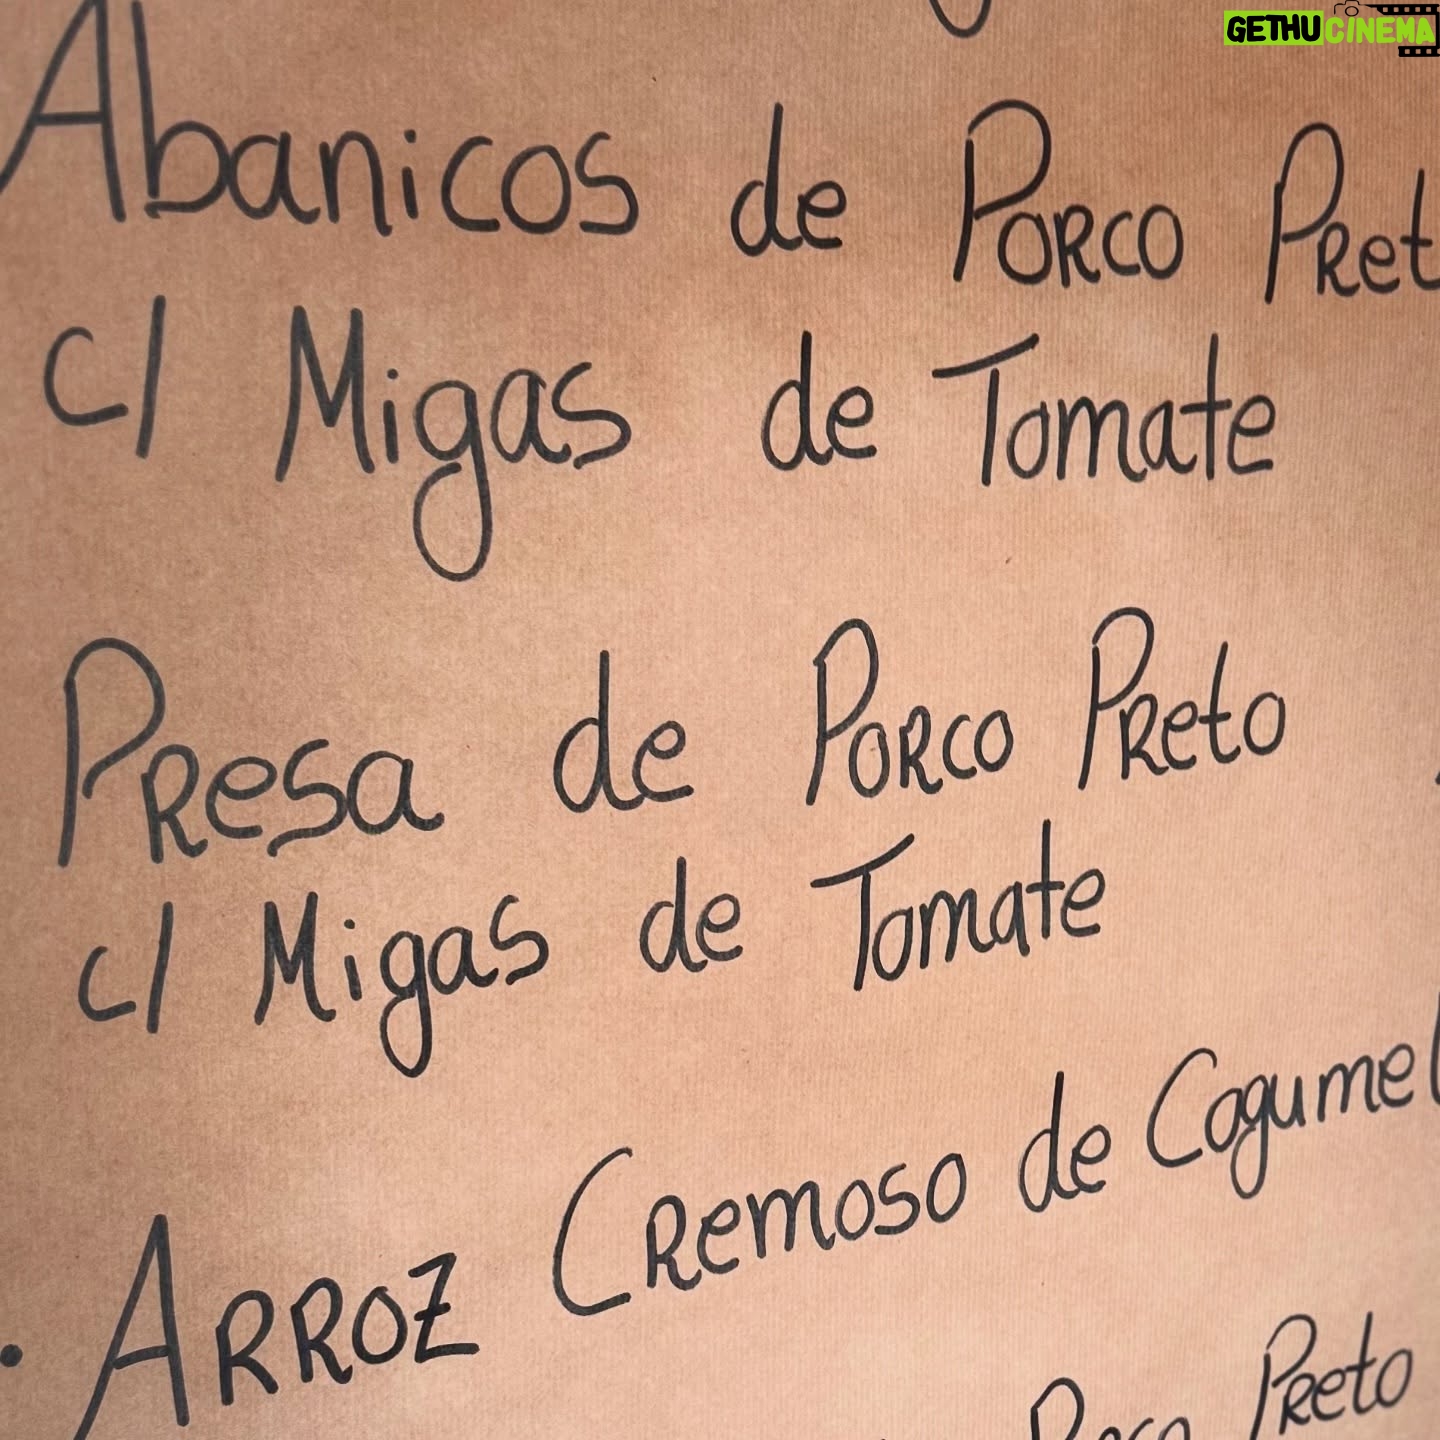 GETHUCINEMA
Abanicos de Porco Pret
c/ Migas de Tomate
Presa de Porco Preto
c/ Migas de Tomate
. Arroz Cremoso de Cogumel
Preto